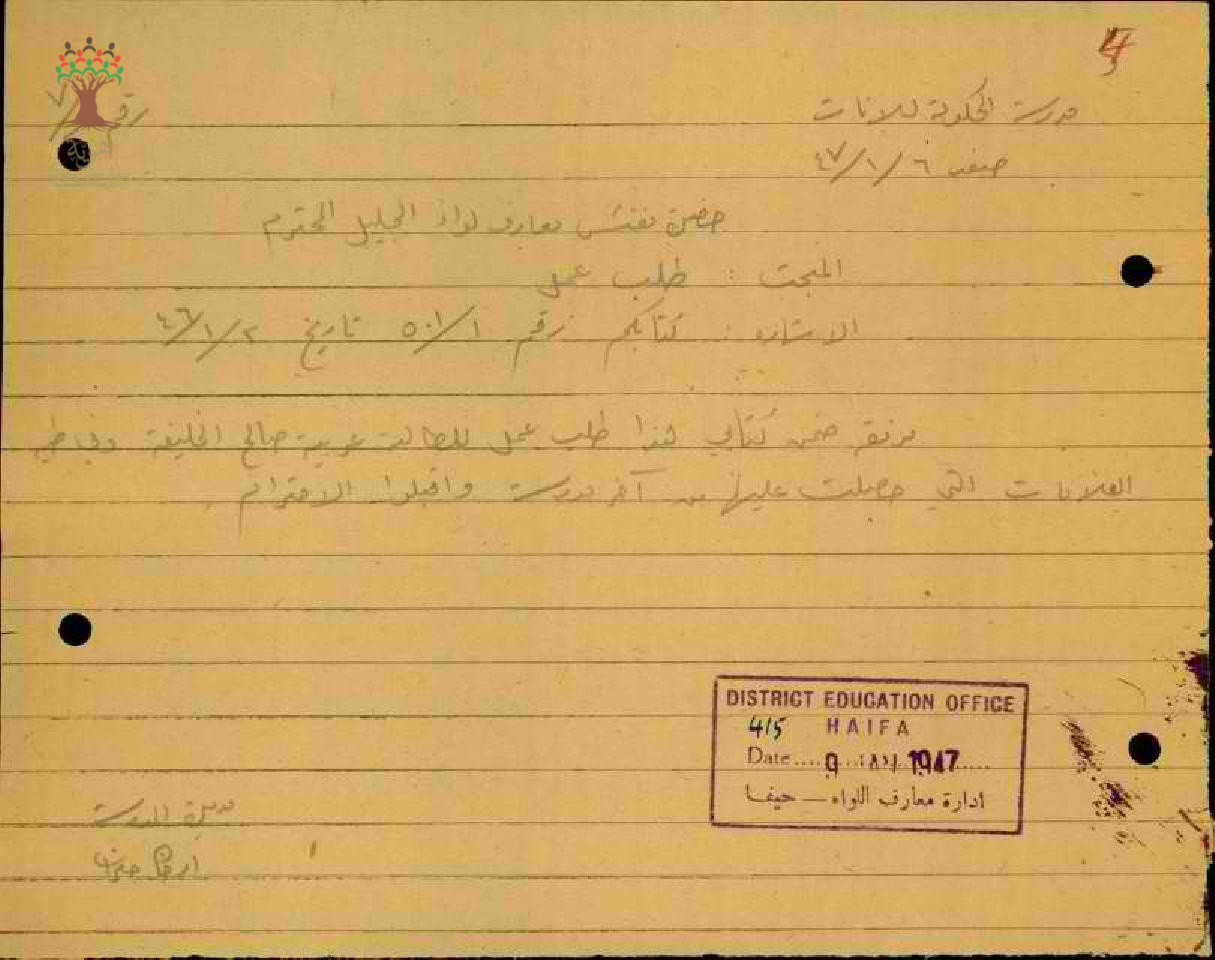 4
مدرسة الحكومة للإناث
رقم ٧/
صفد ٦/١/٤٧
حضرة مفتش معارف لواء الجليل المحترم
المبحث : طلب عمل
الاشارة : كتابكم رقم ٥٠١/١ تاريخ ٤٦/١/٢
مرفق ضمن كتابي هذا طلب عمل للطالبة عربية صالح الخليفة وفي طيه
العلامات التي حصلت عليها من آخر مدرسة واقبلوا الاحترام .
DISTRICT EDUCATION OFFICE
415 HAIFA
Date.... 9 JAN 1947.....
ادارة معارف اللواء — حيفا
مديرة المدرسة